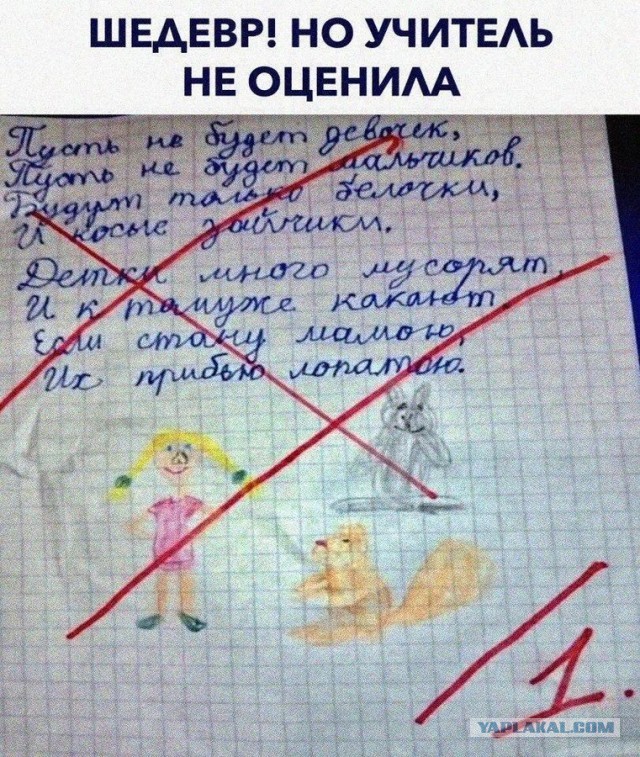 ШЕДЕВР! НО УЧИТЕЛЬ
НЕ ОЦЕНИЛА
Пусть не будет девочек,
Пусть не будет мальчиков.
Будут только белочки,
И косые зайчики.
Детки много мусорят,
И к тамуже какают.
Если стану мамою,
Их прибью лопатою.
1.
YAPLAKAL.COM